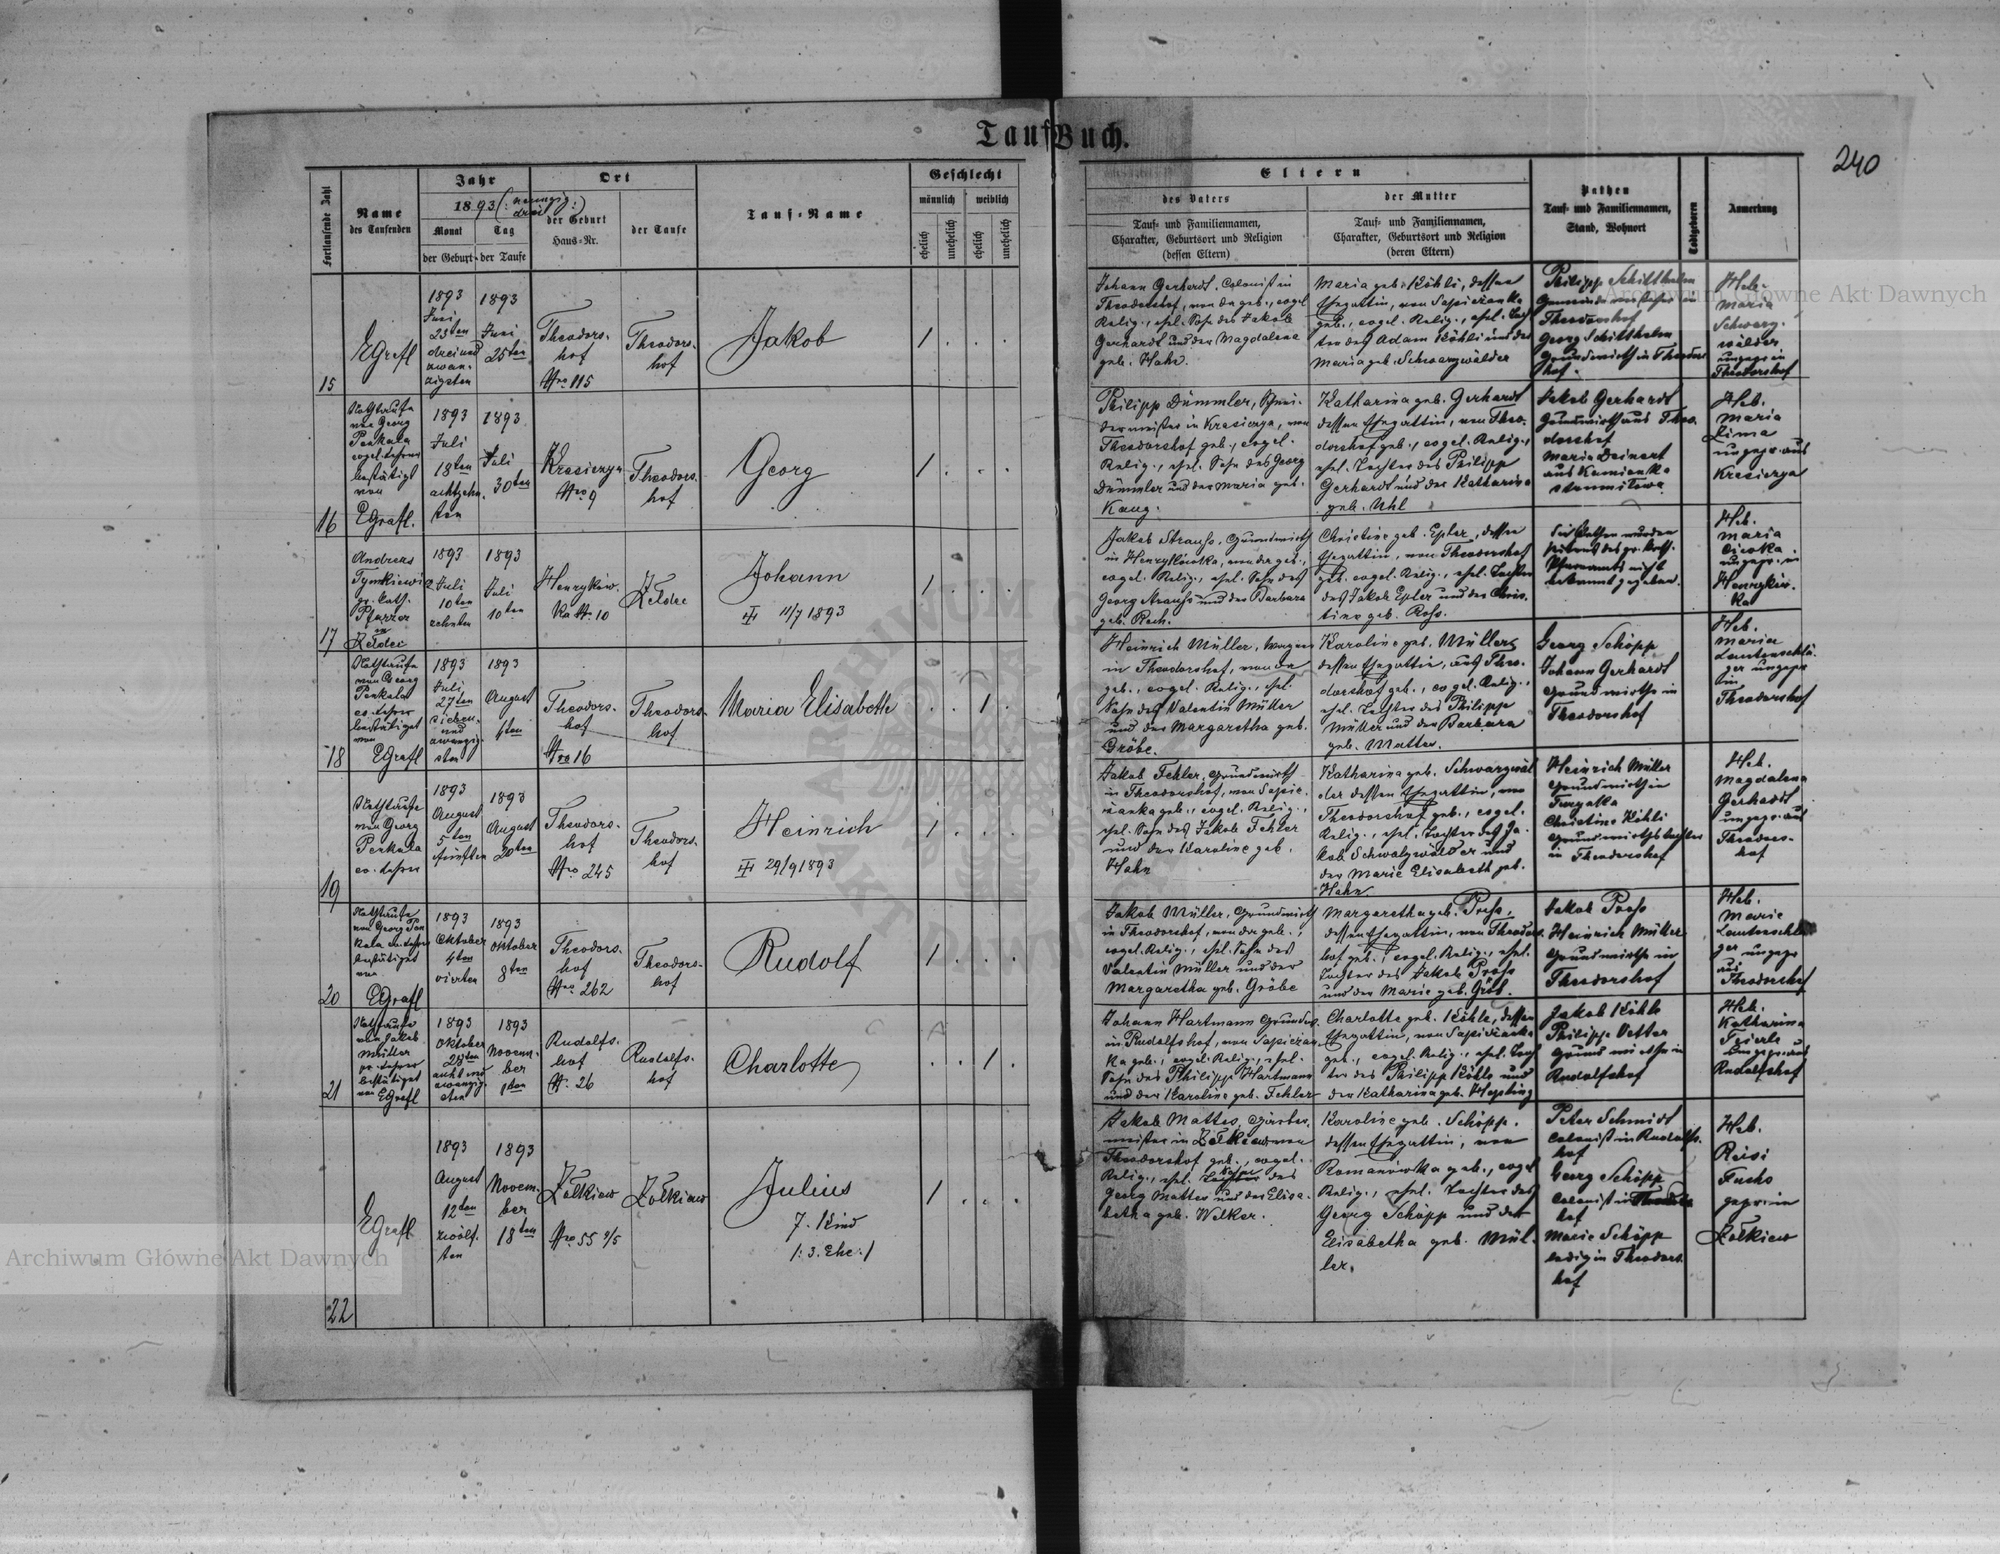 TaufBuch.
240
Fortlaufende Zahl
Name
des Taufenden
Jahr
1893 (: neunzig:)
drei
Monat
Tag
der Geburt
der Taufe
Ort
der Geburt
Haus-Nr.
der Taufe
Tauf-Name
Geschlecht
männlich
weiblich
ehelich
unehelich
ehelich
unehelich
Eltern
des Vaters
Tauf- und Familiennamen,
Charakter, Geburtsort und Religion
(dessen Eltern)
der Mutter
Tauf- und Familiennamen,
Charakter, Geburtsort und Religion
(deren Eltern)
Pathen
Tauf- und Familiennamen,
Stand, Wohnort
Todtgeboren
Anmerkung
15
EGrefl
1893
Juni
23ten
dreiund
zwan-
zigsten
1893
Juni
25ten
Theodors-
hof
Nro 115
Theodors-
hof
Jakob
1
Johann Gerhardt, Colonist in
Theodorshof, von da geb., evgel.
Relig., ehel. Sohn des Jakob
Gerhardt und der Magdalena
geb. Hahn.
Maria geb. Köhli, dessen
Ehegattin, von Sapieżanka
geb., evgel. Relig., ehel. Toch
ter des Adam Köhli und der
Maria geb. Schwarzwälder
Philipp Schiltheim
Theodorshof
Georg Schiltheim
Grundwirth in Theodors
hof.
Heb.
Maria
Schwarz-
wälder
ungepr. in
Theodorshof
16
Nothtaufe
von Georg
Penkala
evgel. Lehrer
bestätigt
von
EGrefl.
1893
Juli
18ten
achtzehn-
ten
1893
Juli
30ten
Nro 9
Theodors-
hof
Georg
1
Philipp Dümmler, Schnei-
dermeister in
Theodorshof geb., evgel.
Relig., ehel. Sohn des Georg
Dümmler und der Maria geb.
Kaug.
Katharina geb. Gerhardt
dessen Ehegattin, von Theo-
dorshof geb., evgel. Relig.,
ehel. Tochter des Philipp
Gerhardt und der Katharina
geb. Uhl
Jakob Gerhardt
Grundwirth aus Theo-
dorshof
Maria Deinert
aus Kamionka
strumiłowa
Heb.
Maria
Lima
ungepr. aus
17
Andreas
gr. kath.
Pfarrer
in
Żeldec
1893
Juli
10ten
zehnten
1893
Juli
10ten
Henryków-
ka Nr. 10
Żeldec
Johann
11/7 1893
1
Jakob Strauss, Grundwirth
in Henrykówka, von da geb.,
evgel. Relig., ehel. Sohn des
Georg Strauss und der Barbara
geb. Rech.
Christine geb. Epler, dessen
Ehegattin, von Theodorshof
geb. evgel. Relig., ehel. Tochter
des Jakob Epler und der Chris-
tine geb. Ross.
Die Pathen wurden
Pfarramts nicht
bekannt gegeben.
Heb.
Maria
ungepr. in
Henryków-
ka
18
Nothtaufe
von Georg
Penkala
ev. Lehrer
bestätiget
von
EGrefl
1893
Juli
27ten
sieben-
und
zwanzig-
sten
1893
August
6ten
Theodors-
hof
Nro 16
Theodors-
hof
Maria Elisabeth
1
Heinrich Müller, Wagner
in Theodorshof, von da
geb., evgel. Relig., ehel.
Sohn des Valentin Müller
und der Margaretha geb.
Gröbe.
Karoline geb. Müller,
dessen Ehegattin, aus Theo-
dorshof geb., evgel. Relig.,
ehel. Tochter des Philipp
Müller und der Barbara
geb. Matter.
Georg Schöpp
Johann Gerhardt
Grundwirthe in
Theodorshof
Heb.
Maria
Lautenschlä-
ger ungepr.
in
Theodorshof
19
Nothtaufe
von Georg
Penkala
ev. Lehrer
1893
August
5ten
fünften
1893
August
20ten
Theodors-
hof
Nro 245
Theodors-
hof
Heinrich
29/9 1893
1
Jakob Fehler, Grundwirth
in Theodorshof, von Sapie-
żanka geb., evgel. Relig.,
ehel. Sohn des Jakob Fehler
und der Karoline geb.
Hahn
Katharina geb. Schwarzwäl
der dessen Ehegattin, von
Theodorshof geb., evgel.
Relig., ehel. Tochter des Ja-
kob Schwalzwälder und
der Marie Elisabeth geb.
Hahn
Heinrich Müller
Grundwirth in
Christine Köhli
Grundwirthstochter
in Theodorshof
Heb.
Magdalena
Gerhardt
ungepr. aus
Theodors-
hof
20
Nothtaufe
von Georg Pen
kala ev. Lehrer
bestätiget
von
EGrefl
1893
Oktober
4ten
vierten
1893
Oktober
8ten
Theodors-
hof
Nro 262
Theodors-
hof
Rudolf
1
Jakob Müller, Grundwirth
in Theodorshof, von da geb.,
evgel. Relig., ehel. Sohn des
Valentin Müller und der
Margaretha geb. Gröbe
Margaretha geb. Press,
dessen Ehegattin, von Theodors-
hof geb., evgel. Relig., ehel.
Tochter des Jakob Press
und der Marie geb. Gröb.
Jakob Press
Heinrich Müller
Grundwirthe in
Theodorshof
Heb.
Marie
Lautenschlä
ger ungepr
aus
Theodorshof
21
Nothtaufe
von Jakob
Müller
bestätiget
von EGrefl
1893
Oktober
28ten
acht und
zwanzig-
sten
1893
Novem-
ber
1ten
Rudolfs-
hof
Nr. 26
Rudolfs-
hof
Charlotte
1
Johann Hartmann Grundw.
in Rudolfshof, von Sapiezan-
ka geb., evgel. Relig., ehel.
Sohn des Philipp Hartmann
und der Karoline geb. Fehler
Charlotte geb. Köhle, dessen
Ehegattin, von Sapieżanka
geb., evgel. Relig., ehel. Toch
ter des Philipp Köhle und
der Katharina geb. Hepting
Jakob Köhle
Philipp Vetter
Grundwirthe in
Rudolfshof
Heb.
Katharina
ungepr. aus
Rudolfshof
22
EGrefl
1893
August
12ten
zwölf-
ten
1893
Novem-
ber
18ten
Żółkiew
Nro 55 2/5
Żółkiew
Julius
7. Kind
/:3. Ehe:/
1
Jakob Mattes, Gärber-
meister in Żółkiew von
Theodorshof geb., evgel.
Relig., ehel. Sohn des
Georg Mattes und der Elisa-
betha geb. Welker.
Karoline geb. Schöpp,
dessen Ehegattin, von
Romanówka geb., evgel
Relig., ehel. Tochter des
Georg Schöpp und der
Elisabetha geb. Mül-
ler.
Peter Schmidt
Colonist in Rudolfs-
hof
Georg Schöpp
Colonist in
hof
Marie Schöpp
ledig in Theodors-
hof
Heb.
Reisi
Fuchs
gepr. in
Żółkiew
Archiwum Główne Akt Dawnych
Archiwum Główne Akt Dawnych